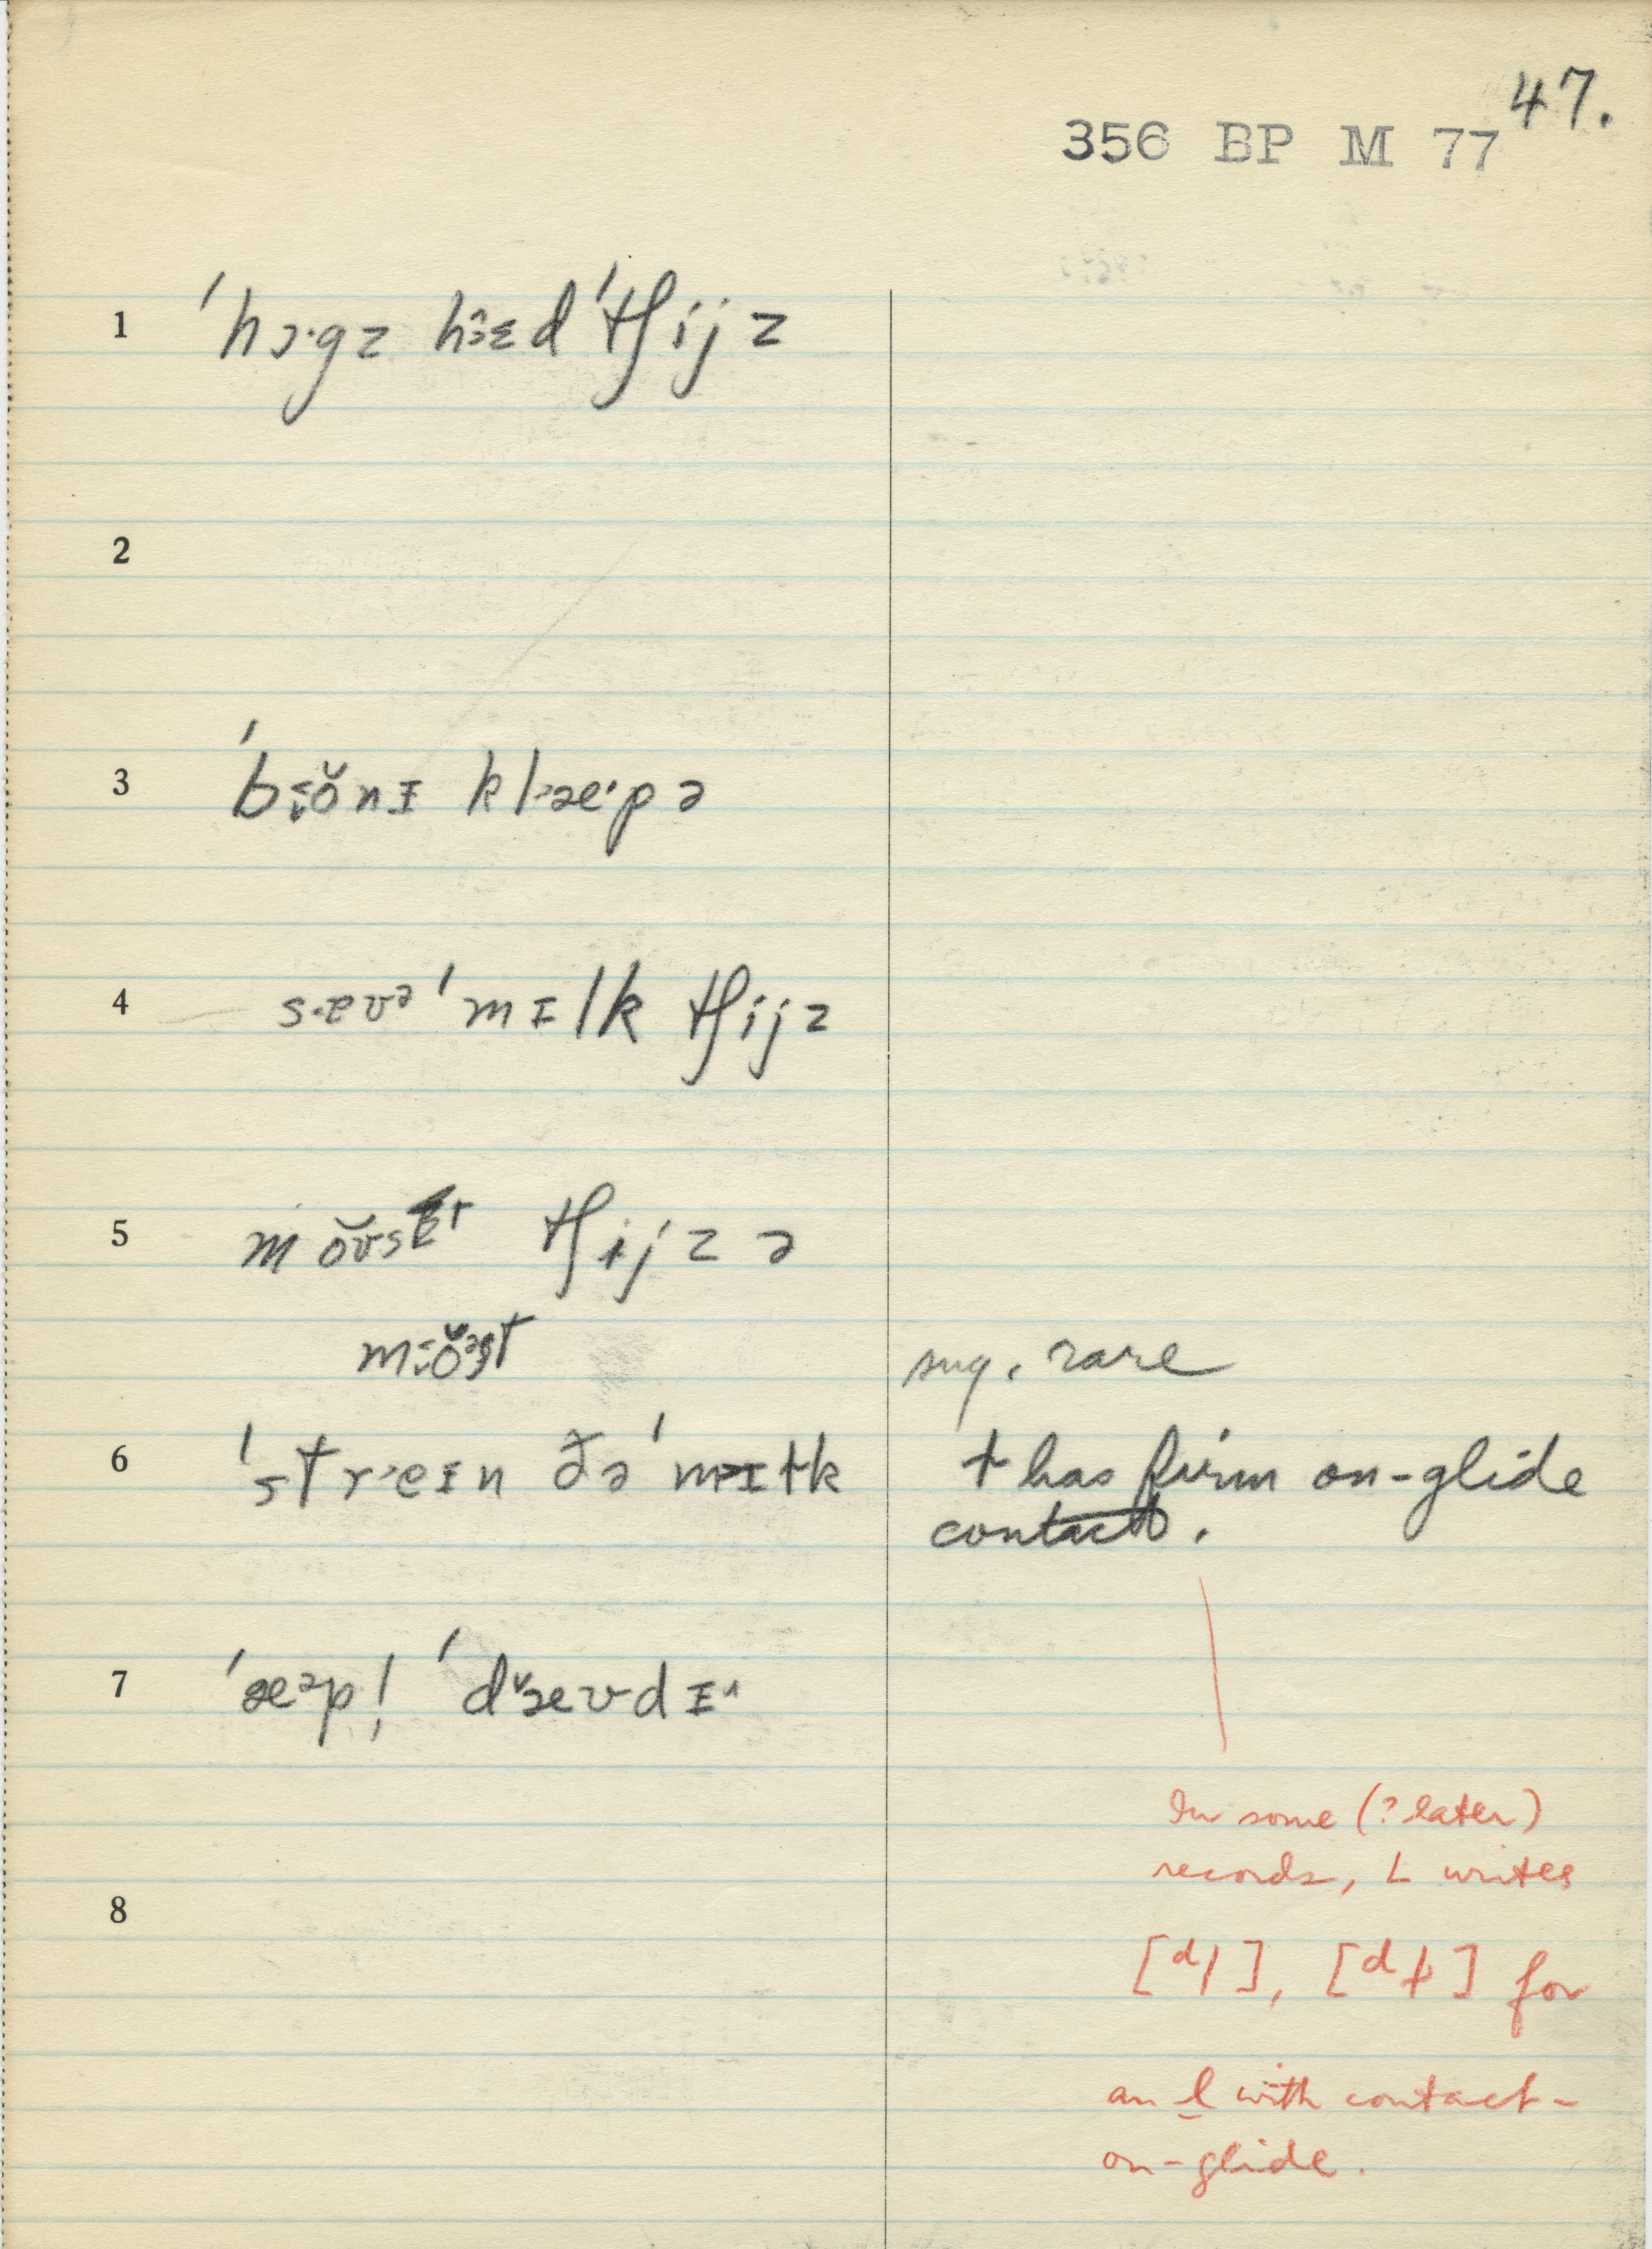 47.
356 BP M 77
1 ˈhɔ·gz hɜ̂ɛd ˈtʃijz
2
3 ˈbɵ̆nɪ klæ·pə
4 sævə ˈmɪlk tʃijz
5 tʃijz ə
sug. rare
6 ˈstreɪn ðə ˈmɪɫk ɫ has firm on-glide
contact.
7 ˈæəp! ˈdæʊdɪ^
In some (? later)
records, L writes
8
[ᵈl], [ᵈɫ] for
an l with contact-
on-glide.